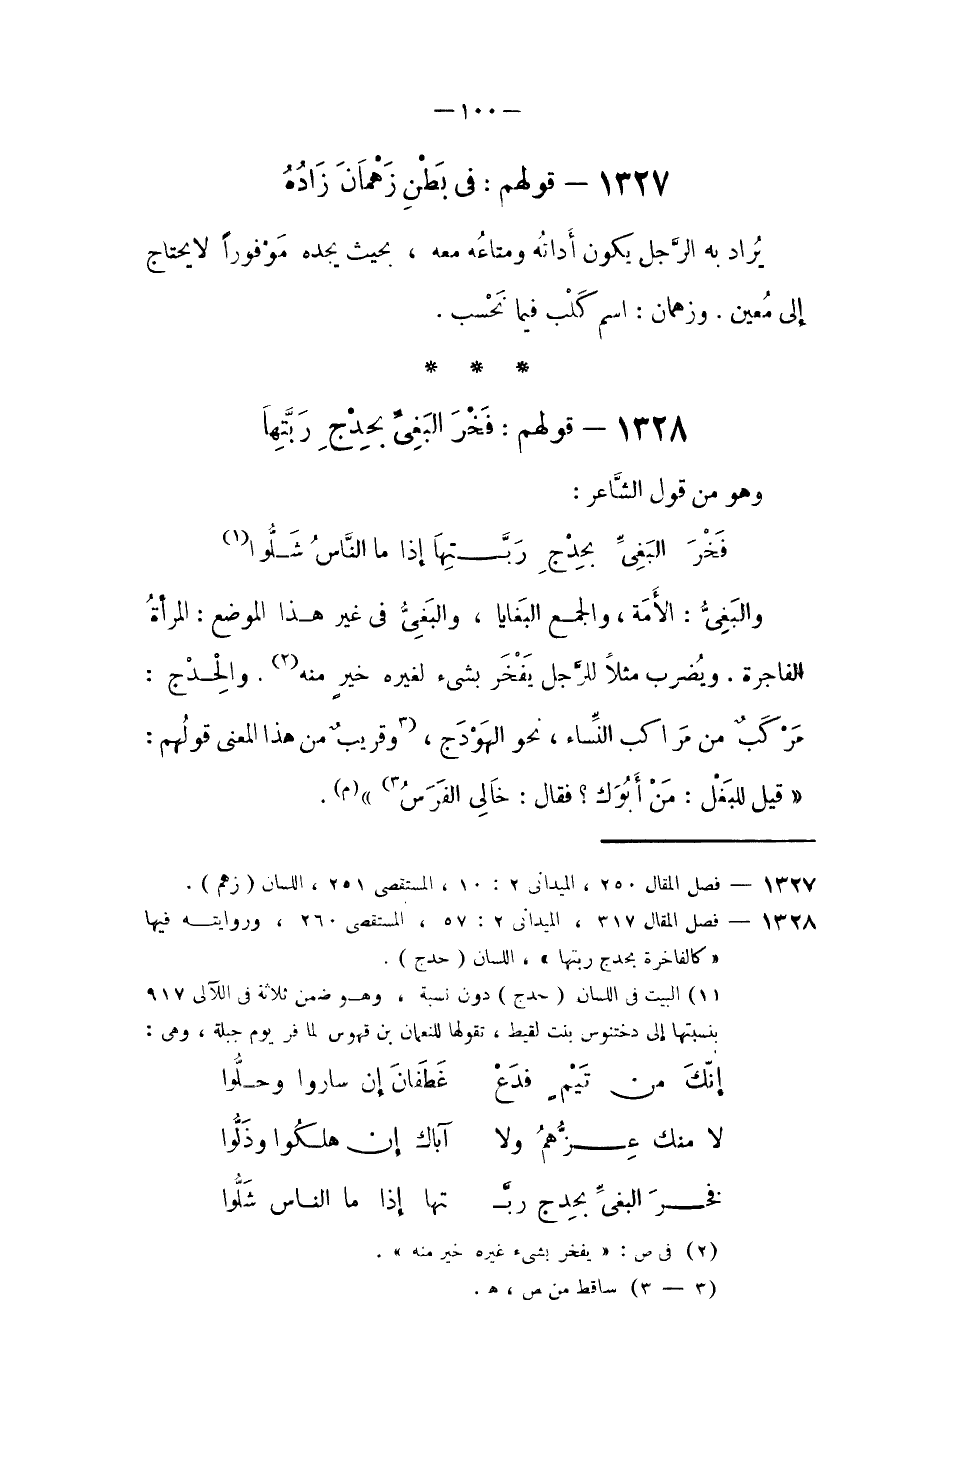 — ١٠٠ —
١٣٢٧ — قولهم : فى بَطْنِ زَهْمَانَ زَادُهُ
يُراد به الرَّجل يكون أَداتُه ومتاعُه معه ، بحيث يجده مَوْفوراً لا يحتاج
إلى مُعين . وزهمان : اسم كَلْب فيما نَحْسب .
* * *
١٣٢٨ — قولهم : فَخْرَ البَغِىِّ بحِدْجِ رَبَّتِهاَ
وهو من قول الشَّاعر :
فَخْرَ البَغِىِّ بحِدْجِ رَبَّـتِهاَ إذا ما النَّاسُ شَـلُّوا(١)
والبَغِىُّ : الأَمَة ، والجمـع البَغايا ، والبَغِىُّ فى غير هـذا الموضع : المرأةُ
الفاجرة . ويُضرب مثلاً للرَّجل يَفْخَر بشىء لغيره خيرٍ منه(٢) . والحِـدْج :
مَرْكَبٌ من مَراكب النِّساء ، نحو الهَوْدَج ، (٣وقريبٌ من هذا المعنى قولُهم :
« قيل للبَغْل : مَنْ أَبُوَك ؟ فقال : خَالِى الفَرَسُ٣) »(م) .
١٣٢٧ — فصل المقال ٢٥٠ ، الميدانى ٢ : ١٠ ، المستقصى ٢٥١ ، اللسان ( زهم ) .
١٣٢٨ — فصل المقال ٣١٧ ، الميدانى ٢ : ٥٧ ، المستقصى ٢٦٠ ، وروايتـه فيها
« كالفاخرة بحدج ربتها » ، اللسان ( حدج ) .
(١) البيت فى اللسان ( حدج ) دون نسبة ، وهـو ضمن ثلاثة فى اللآلى ٩١٧
بنسبتها إلى دختنوس بنت لقيط ، تقولها للنعمان بن قهوس لما فر يوم جبلة ، وهى :
إنّكَ من تَيْمٍ فدَعْ غَطَفَانَ إن ساروا وحـلُّوا
لا منك عِـزُّهمُ ولا آباك إن هلـكُوا وذَلُّوا
فخـرَ البغىِّ بحِدج ربَّـ تها إذا ما النـاس شَلُّوا
(٢) فى ص : « يفخر بشىء غيره خير منه » .
(٣ — ٣) ساقط من ص ، هـ .